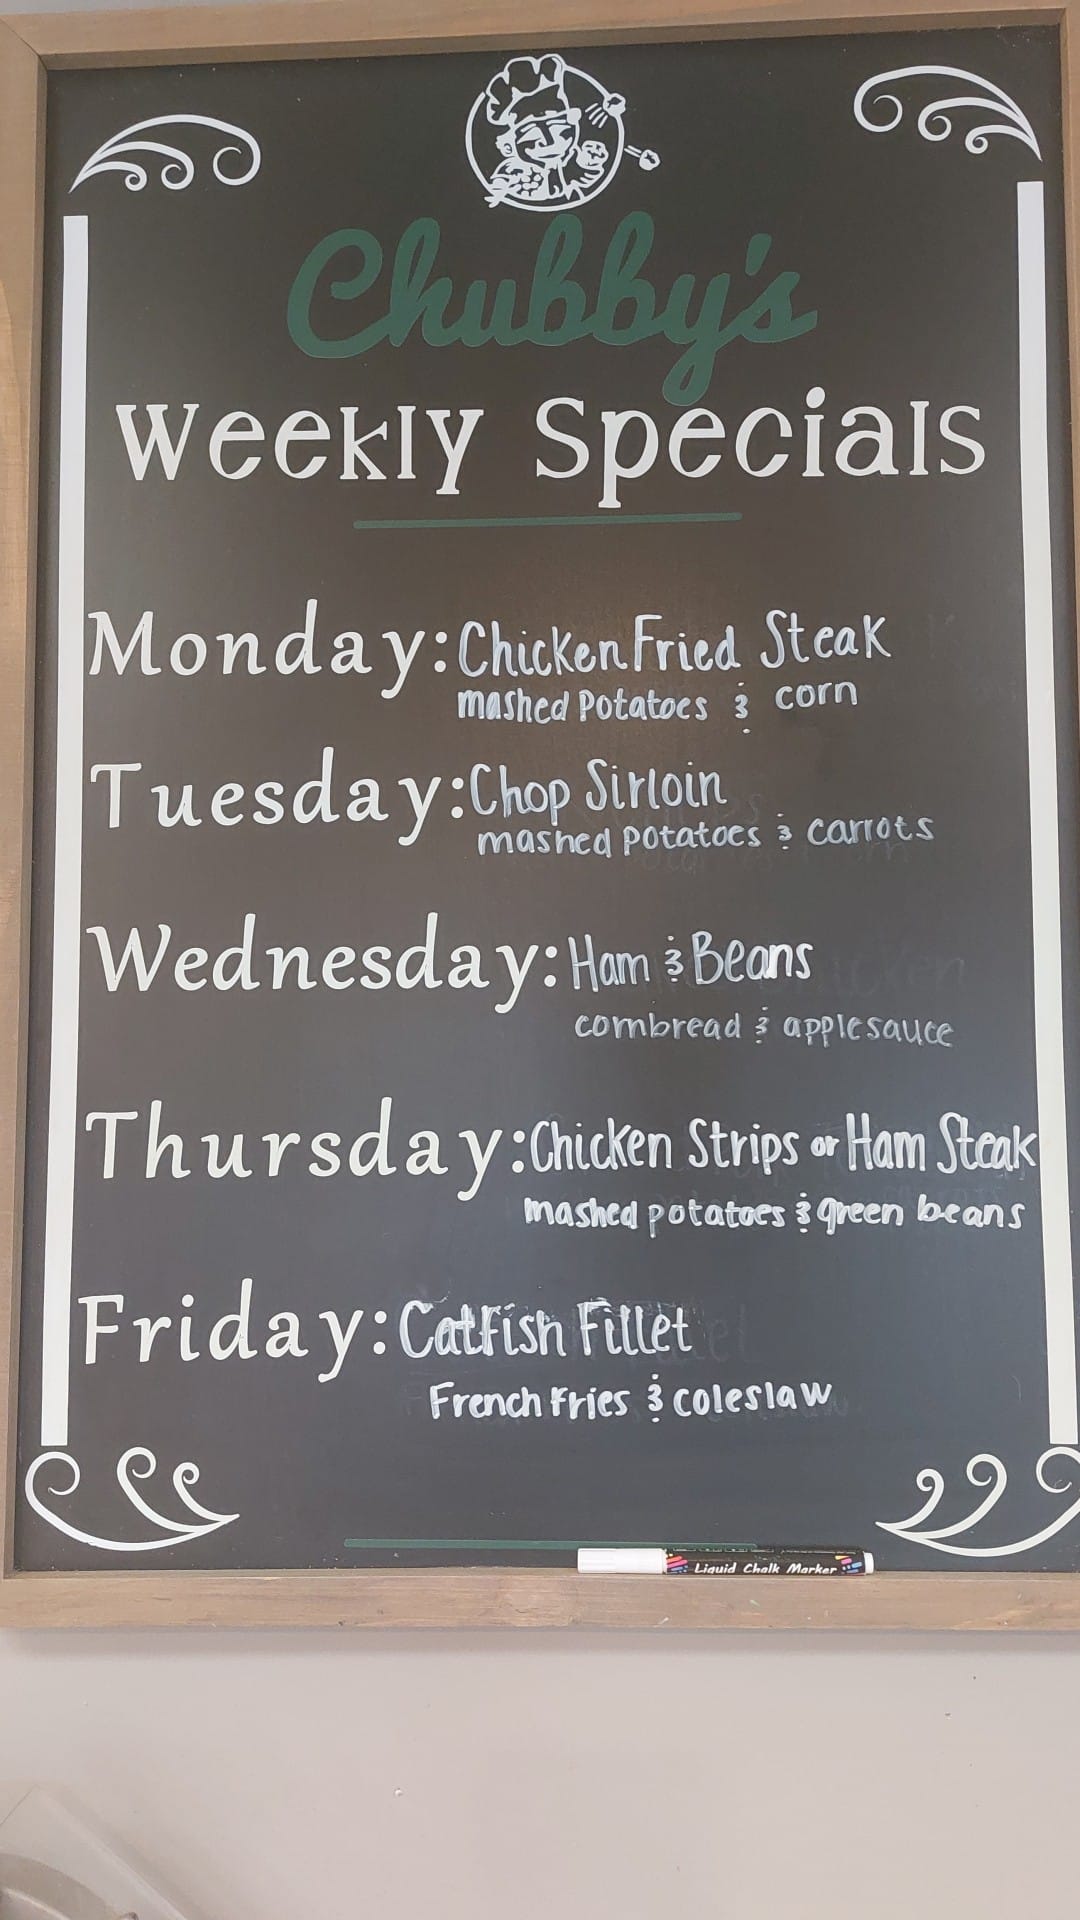 Chubby's
Weekly Specials
Monday: Chicken Fried Steak
mashed potatoes & corn
Tuesday: Chop Sirloin
mashed potatoes & carrots
Wednesday: Ham & Beans
cornbread & applesauce
Thursday: Chicken Strips or Ham Steak
mashed potatoes & green beans
Friday: Catfish Fillet
French fries & coleslaw
Liquid Chalk Marker